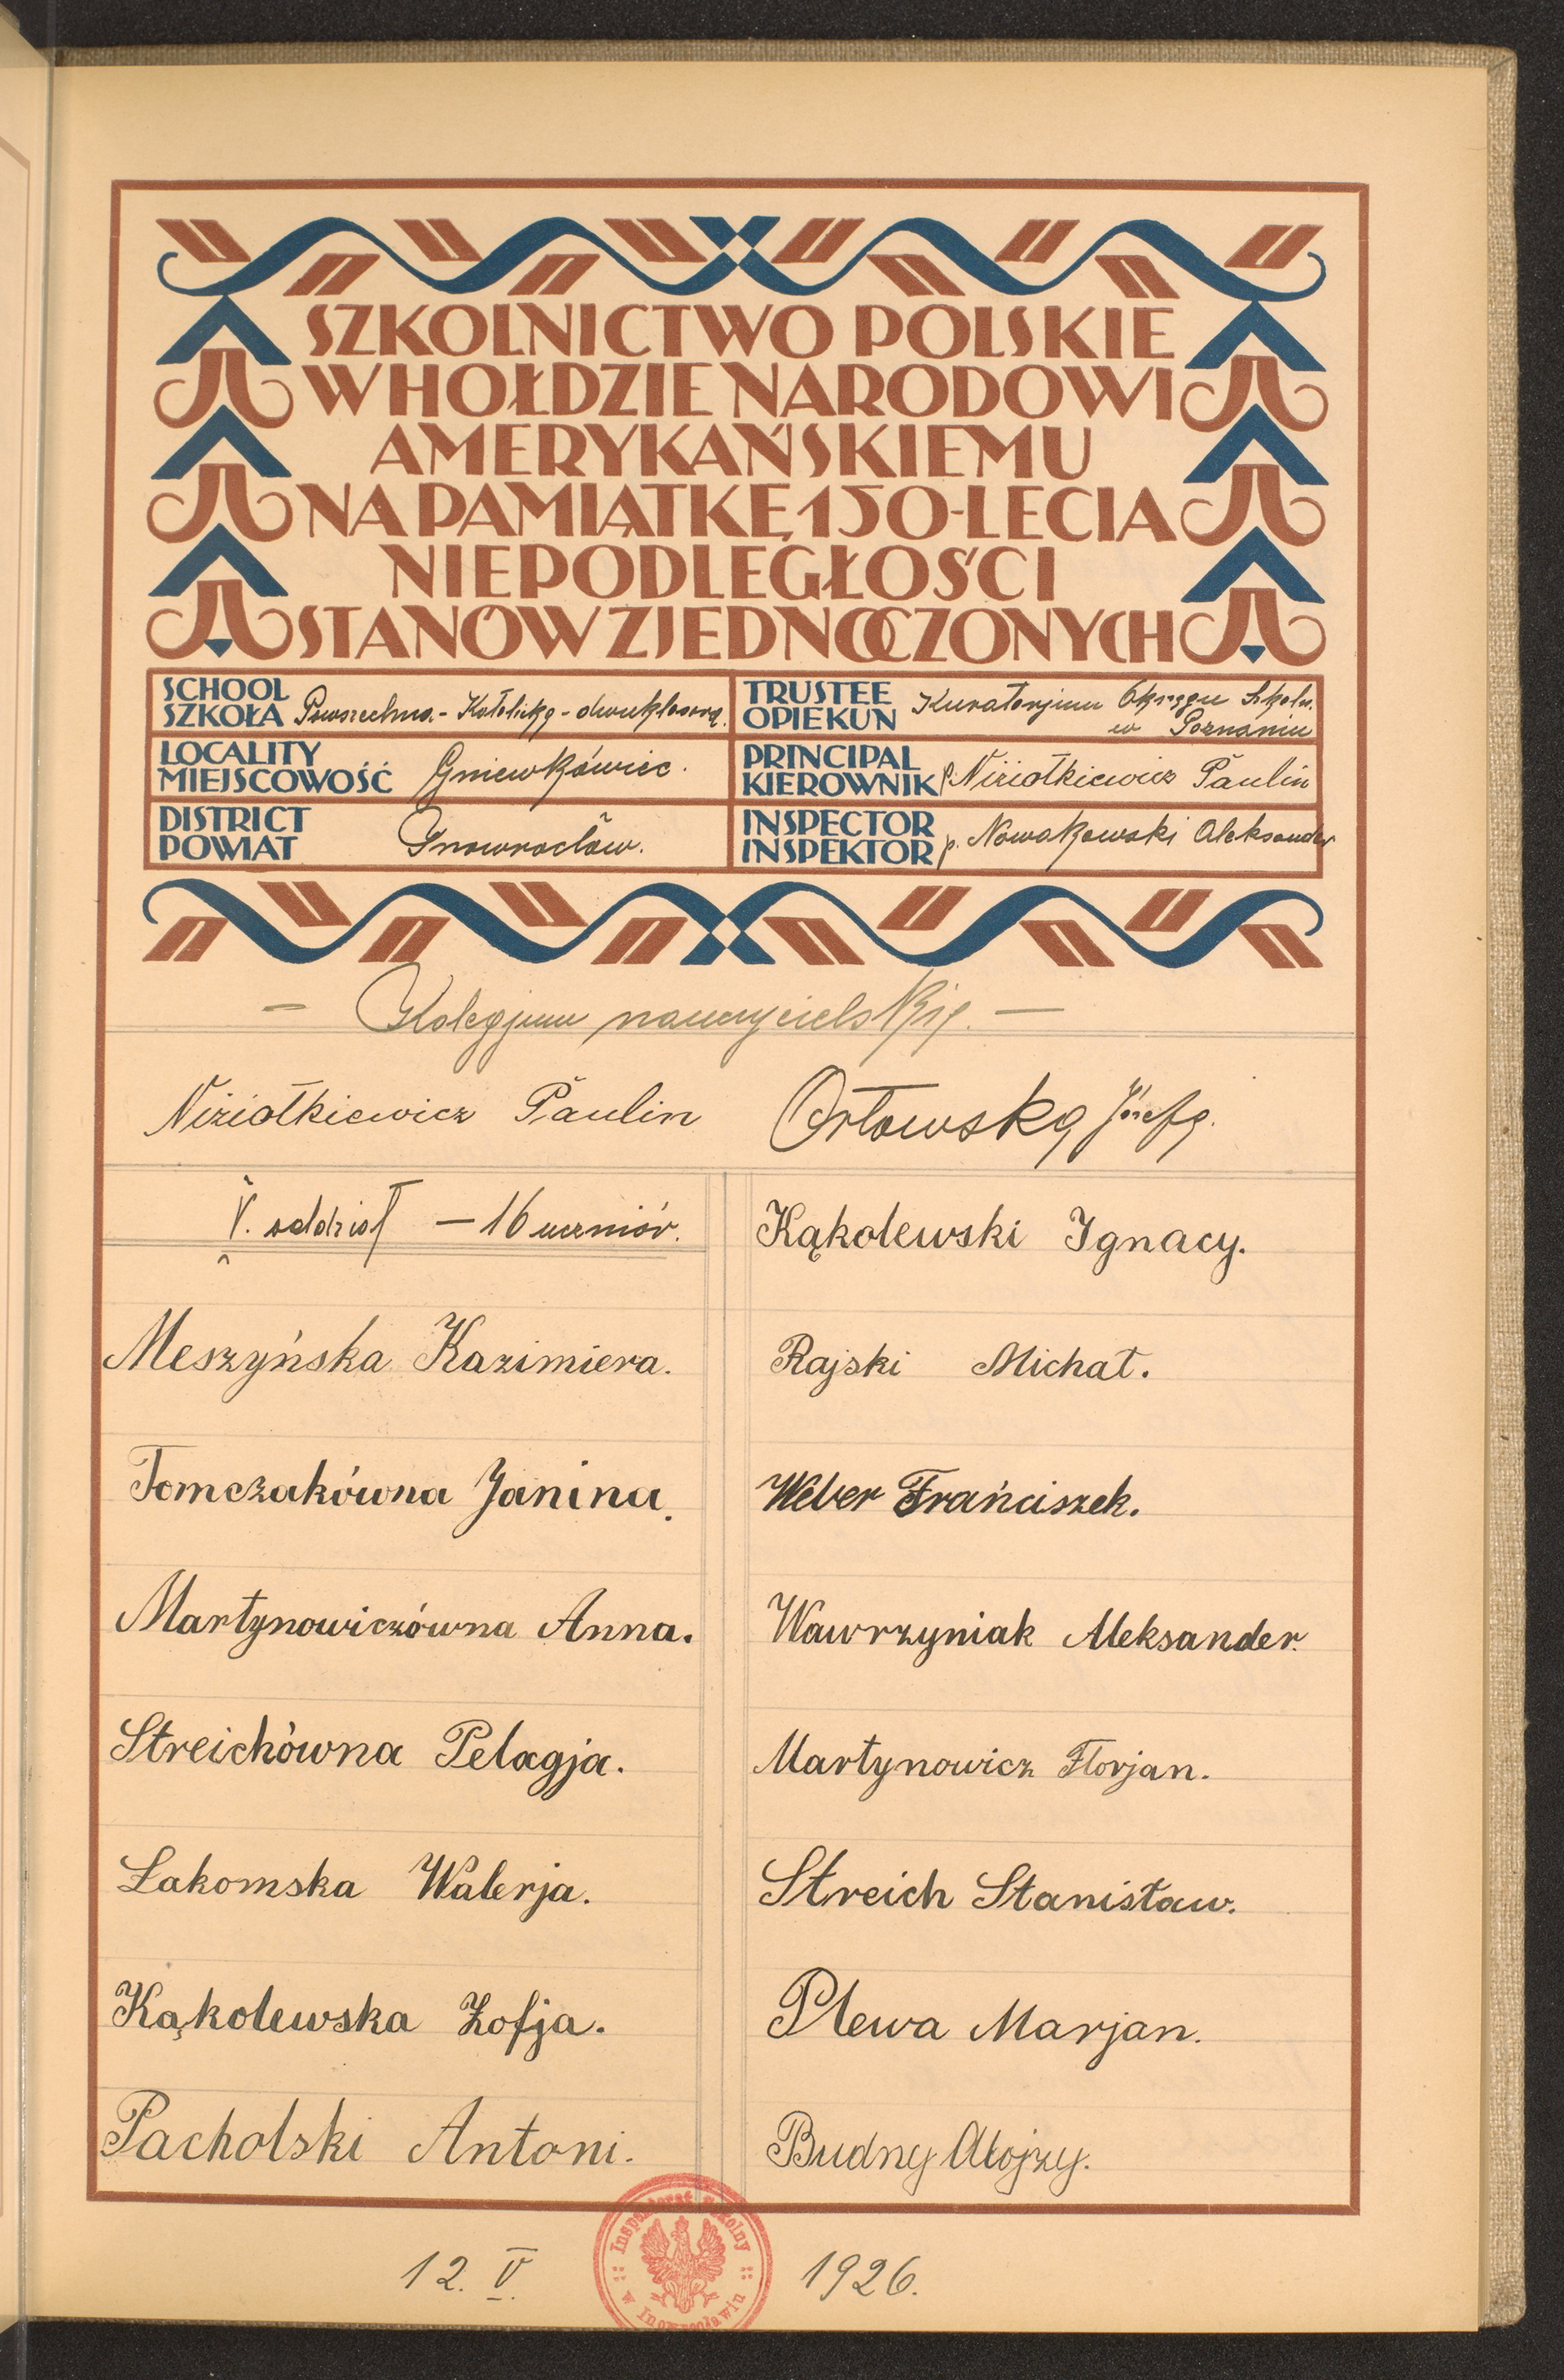 SZKOLNICTWO POLSKIE
W HOŁDZIE NARODOWI
AMERYKAŃSKIEMU
NA PAMIĄTKĘ 150-LECIA
NIEPODLEGŁOŚCI
STANÓW ZJEDNOCZONYCH
SCHOOL
SZKOŁA Powszechna - Katolicka - dwuklasowa.
LOCALITY
MIEJSCOWOŚĆ Gniewkówiec.
DISTRICT
POWIAT Inowrocław.
TRUSTEE Kuratorjum Okręgu Szkoln.
OPIEKUN w Poznaniu
PRINCIPAL
KIEROWNIK p. Niziołkiewicz Paulin
INSPECTOR
INSPEKTOR p. Nowakowski Aleksander
- Kolegjum nauczycielskie. -
Niziołkiewicz Paulin
Orłowska Józefa.
V. oddział - 16 uczniów.
Meszyńska Kazimiera.
Tomczakówna Janina.
Martynowiczówna Anna.
Streichówna Pelagja.
Łakomska Walerja.
Kąkolewska Zofja.
Pacholski Antoni.
Kąkolewski Ignacy.
Rajski Michał.
Weber Frańciszek.
Wawrzyniak Aleksander.
Martynowicz Florjan.
Streich Stanisław.
Plewa Marjan.
Budny Alojzy.
12. V. 1926.
Inspektorat szkolny
w Inowrocławiu